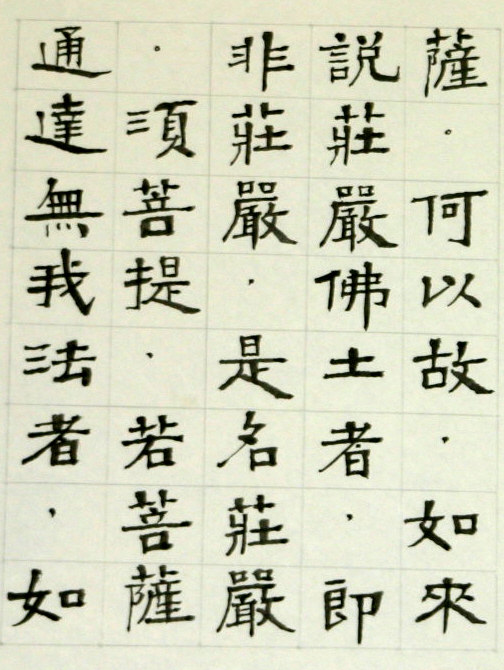 薩。何以故·如來
説莊嚴佛土者·即
非莊嚴·是名莊嚴
。須菩提·若菩薩
通達無我法者·如